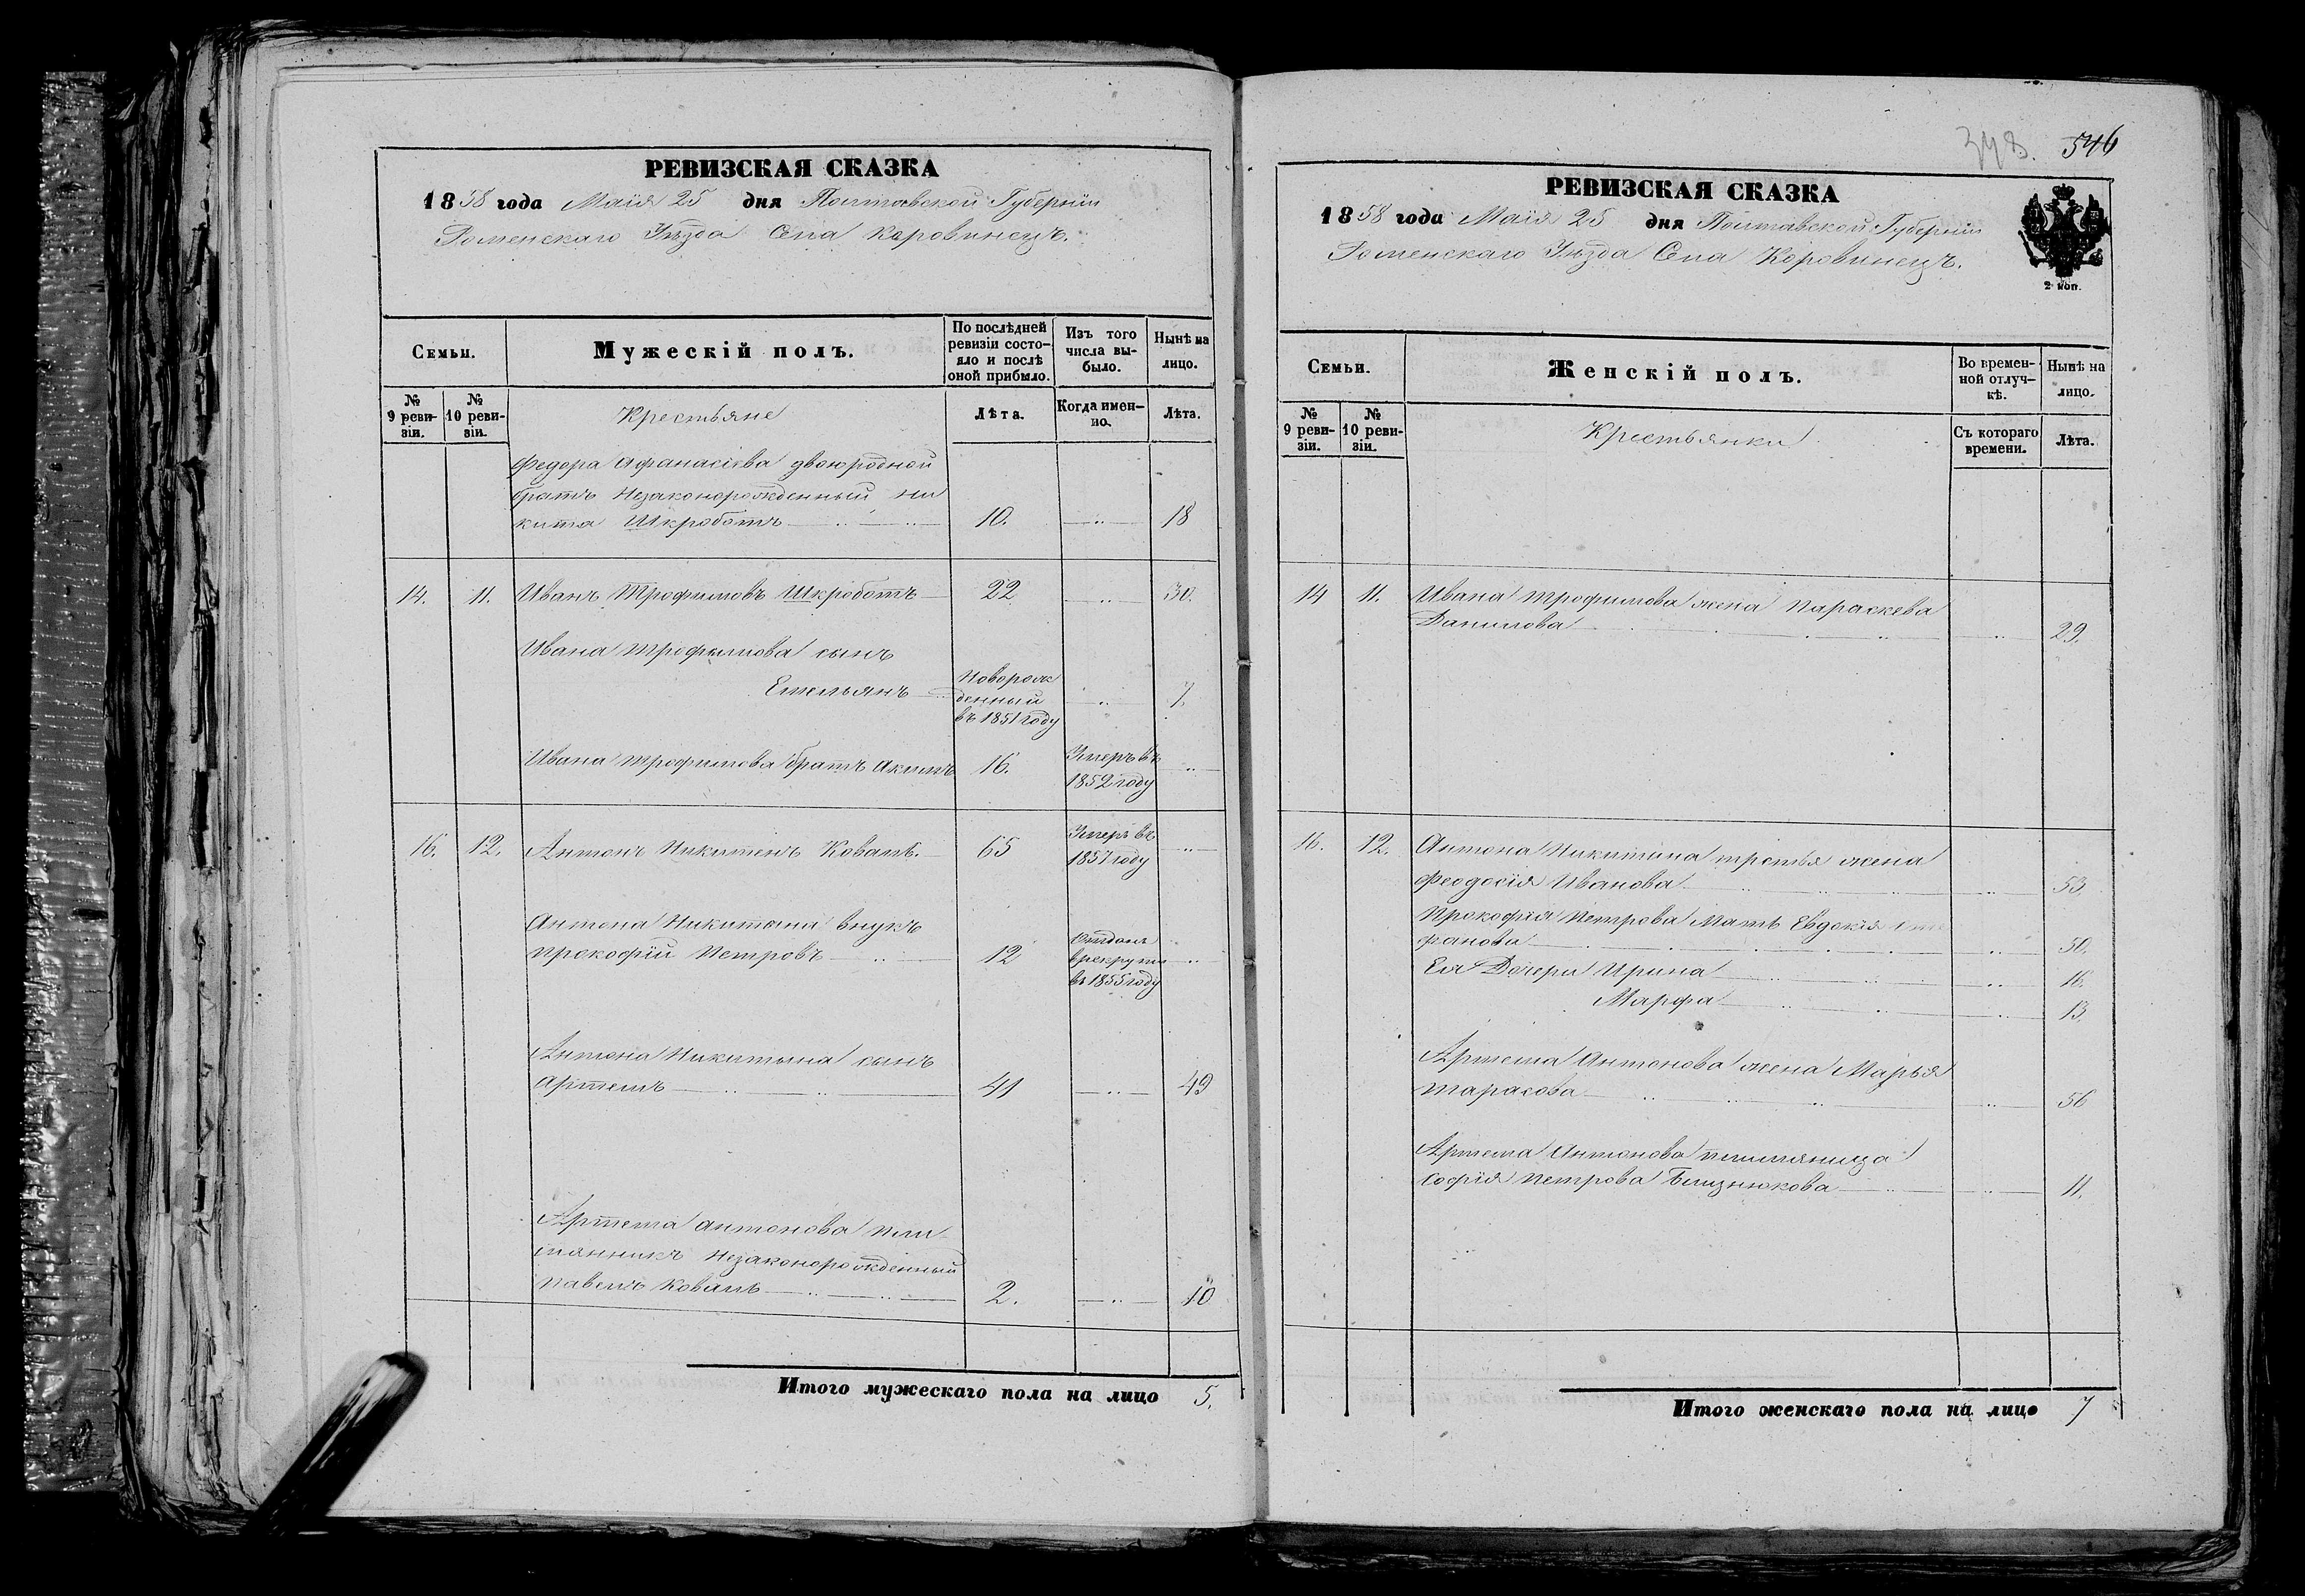 РЕВИЗСКАЯ СКАЗКА
1858 года Маія 25 дня Полтавской Губерніи
Роменскаго Уѣзда Села Коровинецъ.
Семьи.
Мужескій полъ.
По послѣдней ревизіи состо-
яло и послѣ
оной прибыло.
Изъ того
числа вы-
было.
Нынѣ на
лицо.
№
9 реви-
зіи.
№
10 реви-
зіи.
Крестьяне
Лѣта.
Когда имен-
но.
Лѣта.
Федора Афанасіева двоюродной
братъ Незаконорожденный Ни
кита Шкроботъ 10. 18
14. 11. Иванъ Трофимовъ Шкроботъ 22 30.
Ивана Трофимова сынъ
Емельянъ
Новорож
денный
въ 1851 году
7.
Ивана Трофимова братъ Акимъ 16.
Умеръ въ
1852 году
16. 12. Антонъ Никитенъ Коваль. 65
Умеръ въ
1857 году
Антона Никитина внукъ
Прокофій Петровъ 12
Отданъ
в рекруты
въ 1855 году
Антона Никитина сынъ
Артемъ 41 49
Артема Антонова пле-
мянникъ Незаконорожденный
Павелъ Коваль 2. 10
Итого мужескаго пола на лицо 5.
546
РЕВИЗСКАЯ СКАЗКА
1858 года Маія 25 дня Полтавской Губерніи
Роменскаго Уѣзда Села Коровинецъ.
2 коп.
Семьи.
Женскій полъ.
Во времен-
ной отлуч-
кѣ.
Нынѣ на
лицо.
№
9 реви-
зіи.
№
10 реви-
зіи.
Крестьянки
Съ котораго
времени.
Лѣта.
14 11. Ивана Трофимова жена Параскева
Данилова 29.
16. 12. Антона Никитина третья жена
Феодосія Иванова 53.
Прокофія Петрова Мать Евдокія
фанова 50.
Ея Дочери Ирина 16.
Марфа 13.
Артема Антонова жена Марья
Тарасова 56
Артема Антонова племяница
Софія Петрова Близнюкова 11.
Итого женскаго пола на лицо 7